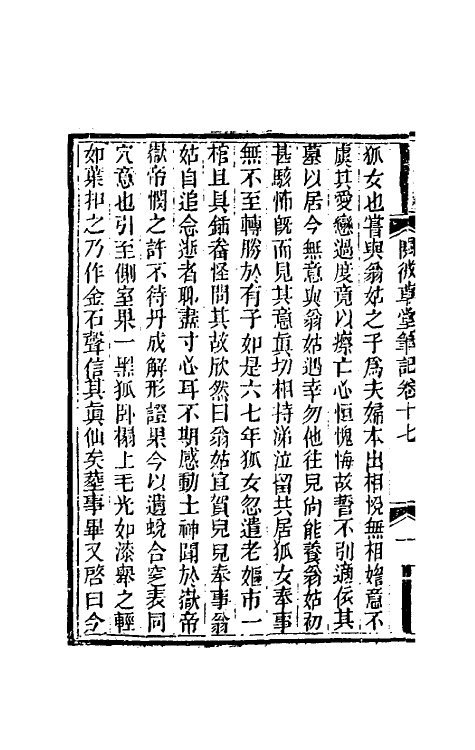 閱微草堂筆記卷十七
一
狐女也嘗與翁姑之子爲夫婦本出相悅無相媚意不
虞其愛戀過度竟以瘵亡心恒愧悔故誓不別適依其
墓以居今無意與翁姑遇幸勿他往兒尚能養翁姑初
甚駭怖旣而見其意眞切相持涕泣留共居狐女奉事
無不至轉勝於有子如是六七年狐女忽遣老嫗市一
棺且具鍤畚怪問其故欣然曰翁姑宜賀兒兒奉事翁
姑自追念逝者聊盡寸心耳不期感動土神聞於嶽帝
嶽帝憫之許不待丹成解形證果今以遺蛻合窆表同
穴意也引至側室果一黑狐臥榻上毛光如漆舉之輕
如葉扣之乃作金石聲信其眞仙矣葬事畢又啓曰今